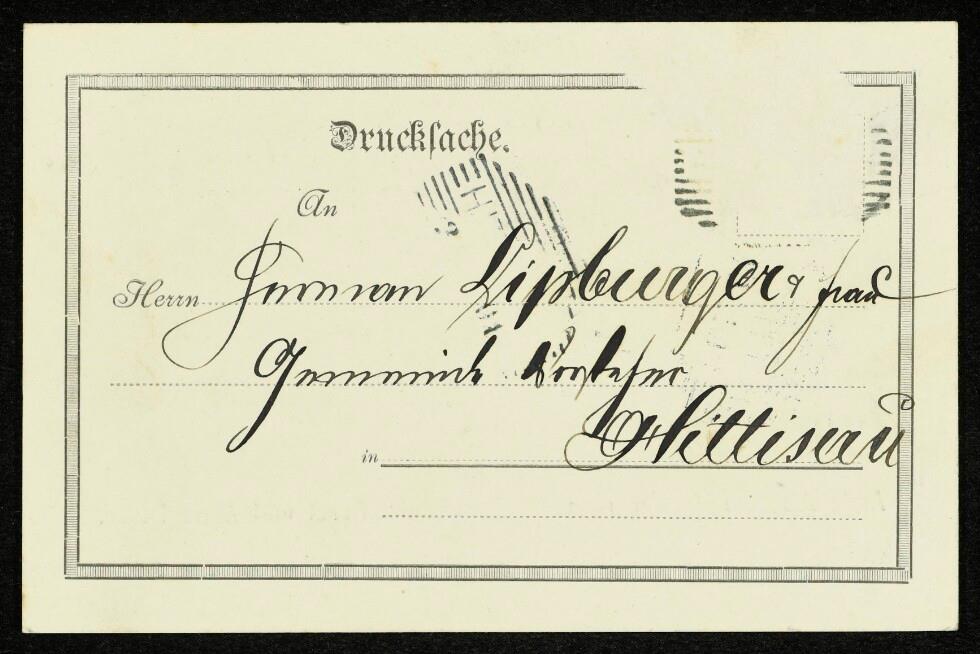 Drucksache.
An
Herrn Herman Lipburger & Frau
Gemeinde Vorsteher
in Hittisau